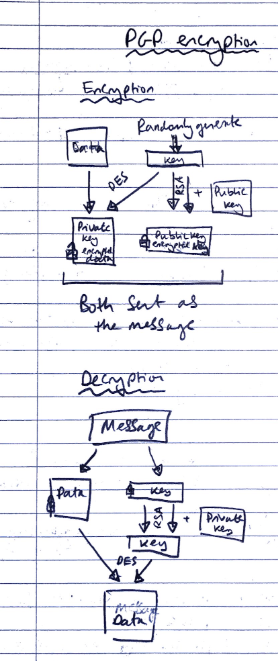 PGP encryption
Encryption
Randomly generate
Data
Key
DES
RSA
+
Public Key
Private Key encrypted data
Public Key encrypted key
Both sent as
the message
Decryption
Message
Data
Key
RSA
+
Private Key
Key
DES
Data